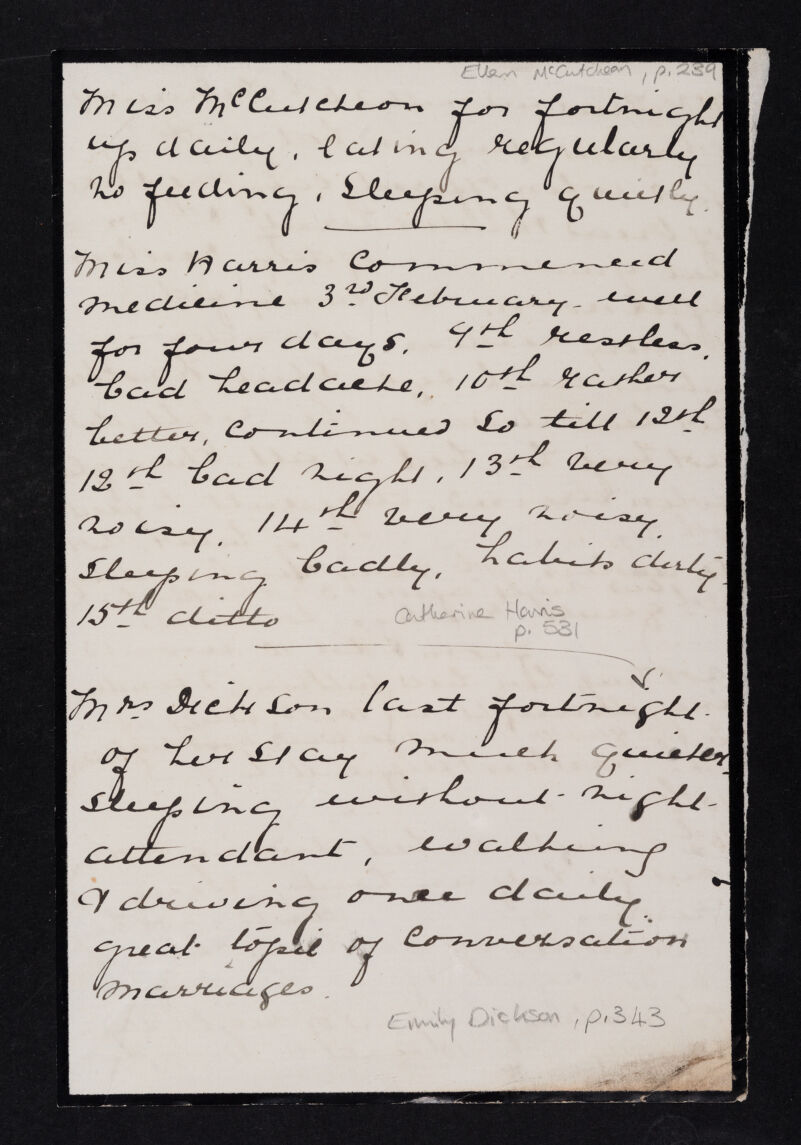 Ellen McCutcheon, p.239
Miss McCutcheon for fortnight
up daily, eating regularly
no feeding, sleeping quietly.
Miss Harris Commenced
medicine 3rd February. well
for four days. 9th restless,
bad headache, 10th rather
better, continued so till 12th
12th bad night, 13th very
noisy, 14th very noisy,
sleeping badly, habits dirty.
15th ditto
Catherine Harris
p. 531
Mrs Dickson last fortnight
of her stay much quieter,
sleeping without night
attendant, walking
& driving once daily,
great topic of conversation
marriages.
Emily Dickson, p.343